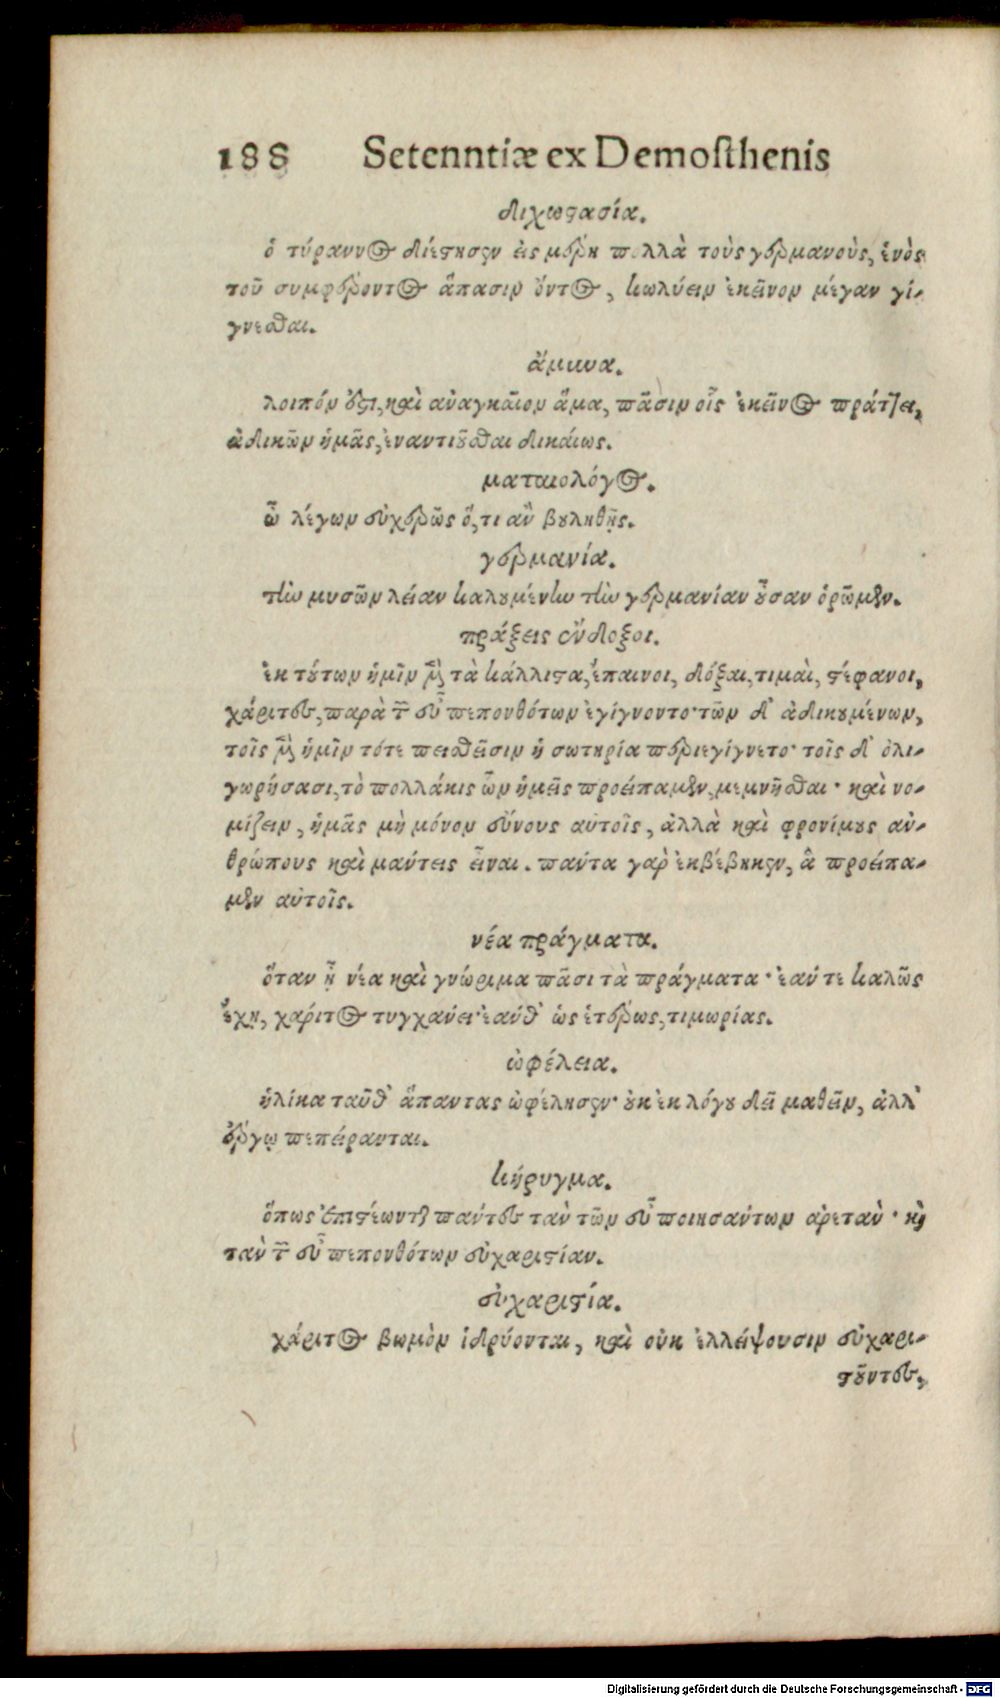 188 Setenntiæ ex Demoſthenis
διχωϛασία.
ὁ τύραννος διέϛησεν εἰς μέρη πολλὰ τοὺς γερμανοὺς, ἑνὸς
τοῦ συμφέροντος ἅπασιν ὄντος, κωλύειν ἐκεῖνον μέγαν γί-
γνεσθαι.
ἄμυνα.
λοιπόν ἐϛι, καὶ ἀναγκαῖον ἅμα, πᾶσιν οἷς ἐκεῖνος πράττει,
ἀδικῶν ἡμᾶς, ἐναντιοῦσθαι δικαίως.
ματαιολόγος.
ὦ λέγων εὐχερῶς ὅ, τι ἂν βουληθῇς.
γερμανία.
τὴν μυσῶν λείαν καλουμένην τὴν γερμανίαν οὖσαν ὁρῶμεν.
πράξεις ἔνδοξοι.
ἐκ τούτων ἡμῖν μὲν τὰ κάλλιϛα, ἔπαινοι, δόξαι, τιμαὶ, ϛέφανοι,
χάριτες, παρὰ τῶν εὖ πεπονθότων ἐγίγνοντο· τῶν δ' ἀδικουμένων,
τοῖς μὲν ἡμῖν τότε πεισθεῖσιν ἡ σωτηρία περιεγίγνετο· τοῖς δ' ὀλι-
γωρήσασι, τὸ πολλάκις ὧν ἡμεῖς προείπαμεν, μεμνῆσθαι· καὶ νο-
μίζειν, ἡμᾶς μὴ μόνον εὔνους αὐτοῖς, ἀλλὰ καὶ φρονίμους ἀν-
θρώπους καὶ μάντεις εἶναι. πάντα γὰρ ἐκβέβηκεν, ἃ προείπα-
μεν αὐτοῖς.
νέα πράγματα.
ὅταν ᾖ νέα καὶ γνώριμα πᾶσι τὰ πράγματα· ἐάν τε καλῶς
ἔχῃ, χάριτος τυγχάνει· ἐάνθ' ὡς ἑτέρως, τιμωρίας.
ὠφέλεια.
ἡλίκα ταῦθ' ἅπαντας ὠφέλησεν· οὐκ ἐκ λόγου δεῖ μαθεῖν, ἀλλ'
ἔργῳ πεπείρανται.
κήρυγμα.
ὅπως ἐπιϛέωνται πάντες τὰν τῶν εὖ ποιησάντων ἀρετὰν· καὶ
τὰν τῶν εὖ πεπονθότων εὐχαριϛίαν.
εὐχαριϛία.
χάριτος βωμὸν ἱδρύονται, καὶ οὐκ ἐλλείψουσιν εὐχαρι-
ϛοῦντες,
Digitalisierung gefördert durch die Deutsche Forschungsgemeinschaft - DFG